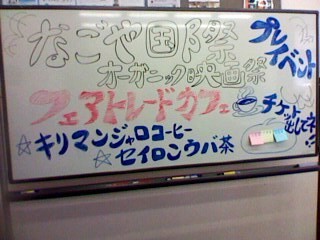 なごや国際
オーガニック映画祭
プレイベント
フェアトレードカフェ
チケット
出してネ!!
☆キリマンジャロコーヒー
☆セイロンウバ茶